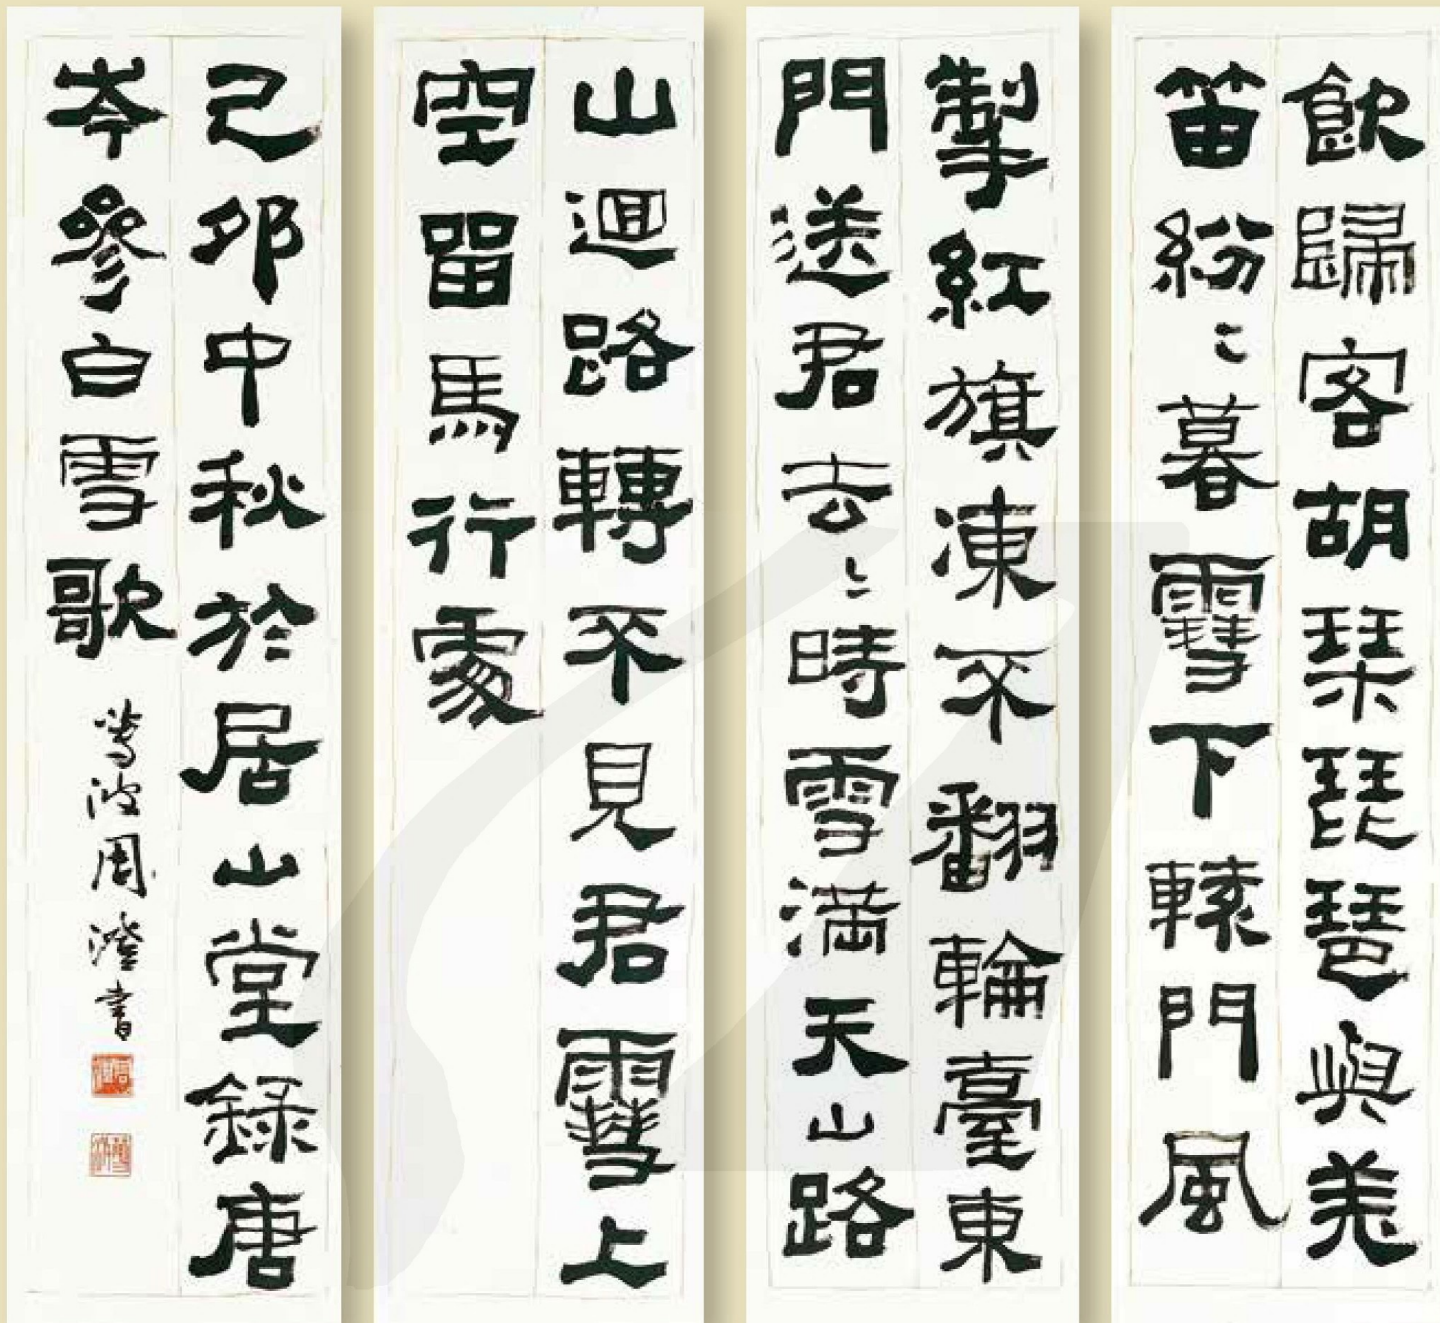 飲歸客胡琴琵琶與羌
笛紛〻暮雪下轅門風
掣紅旗凍不翻輪臺東
門送君去〻時雪滿天山路
山迴路轉不見君雪上
空留馬行處
己卯中秋於居山堂錄唐
岑參白雪歌
周澄書